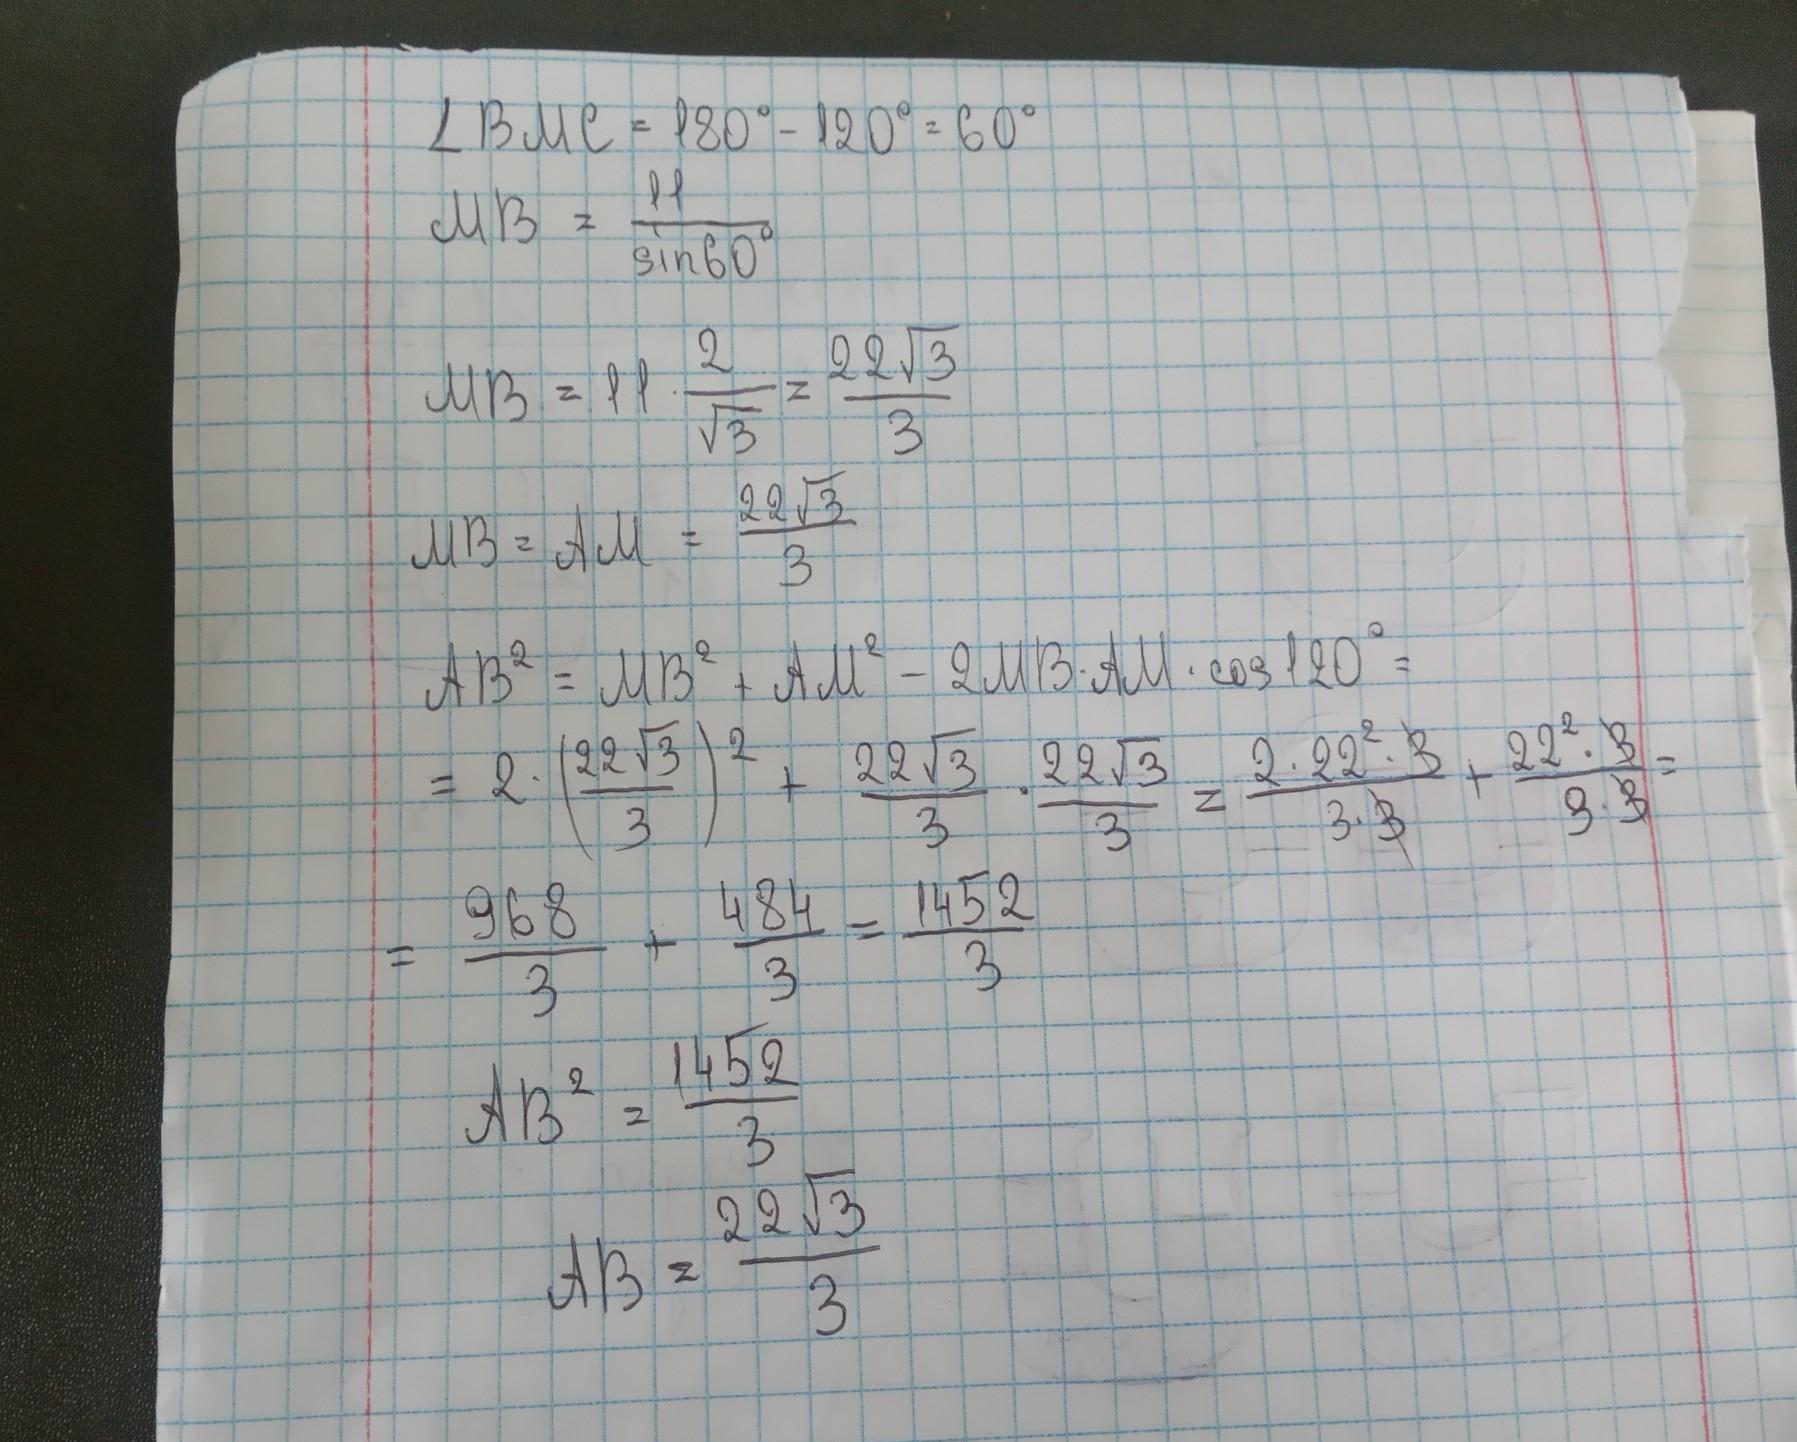 ∠BMC = 180° - 120° = 60°
MB = 11/sin60°
MB = 11 · 2/√3 = 22√3/3
MB = AM = 22√3/3
AB² = MB² + AM² - 2MB·AM·cos120° =
= 2·(22√3/3)² + 22√3/3 · 22√3/3 = 2·22²·3/3·3 + 22²·3/3·3 =
= 968/3 + 484/3 = 1452/3
AB² = 1452/3
AB = 22√3/3